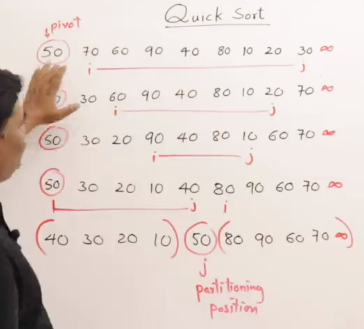 Quick Sort
pivot
50 70 60 90 40 80 10 20 30 ∞
i j
30 60 90 40 80 10 20 70 ∞
i j
50 30 20 90 40 80 10 60 70 ∞
i j
50 30 20 10 40 80 90 60 70 ∞
j i
(40 30 20 10) 50 (80 90 60 70 ∞)
j
partitioning
position